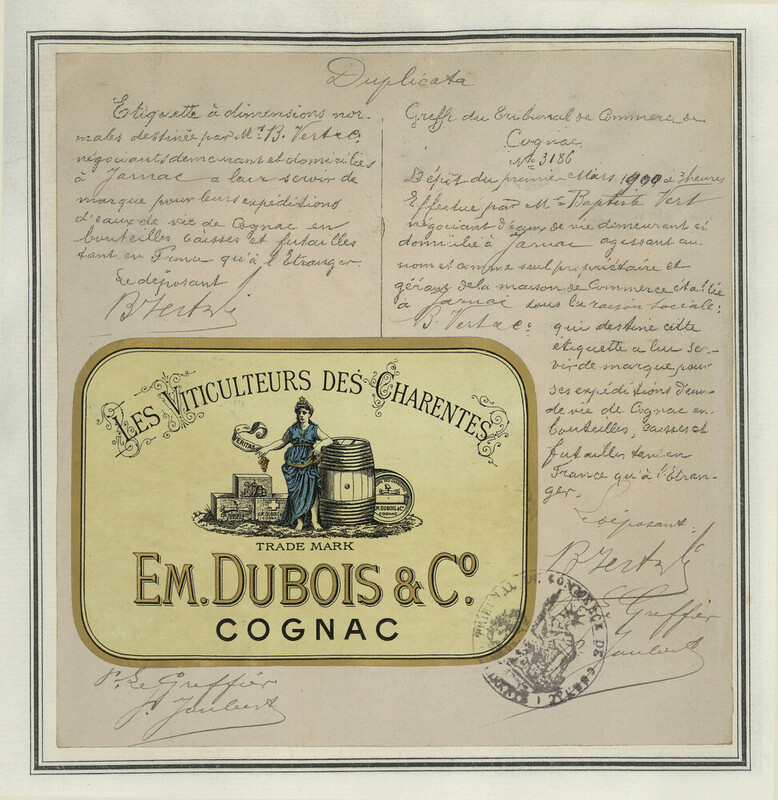 Duplicata
Etiquette à dimensions nor-
males destinée par Mrs B. Vert & Co.
négociants demeurant et domiciliés
à Jarnac a leur servir de
marque pour leurs expéditions
d'eaux de vie de Cognac en
bouteilles caisses et futailles
tant en France qu'à l'Etranger.
Le déposant
B Vert
Greffe du Tribunal de Commerce de
Cognac
No 3186
Dépôt du premier Mars 1900 à 3 heures
Effectué par Mr Baptiste Vert
négociant d'eaux de vie demeurant et
domicilié à Jarnac agissant au
nom et comme seul propriétaire et
gérant de la maison de Commerce établie
à Jarnac sous la raison sociale:
B. Vert & Co. qui destine cette
étiquette a lui ser-
vir de marque pour
ses expéditions d'eaux
de vie de Cognac en
bouteilles, caisses et
futailles tant en
France qu'à l'Etran-
ger.
Le déposant
B Vert
Le Greffier
Jaubert
LES VITICULTEURS DES CHARENTES
VERITAS
EM. DUBOIS & Co
COGNAC
TRADE MARK
EM. DUBOIS & Co.
COGNAC
TRIBUNAL DE COMMERCE DE COGNAC
Pr. Le Greffier
J. Jaubert